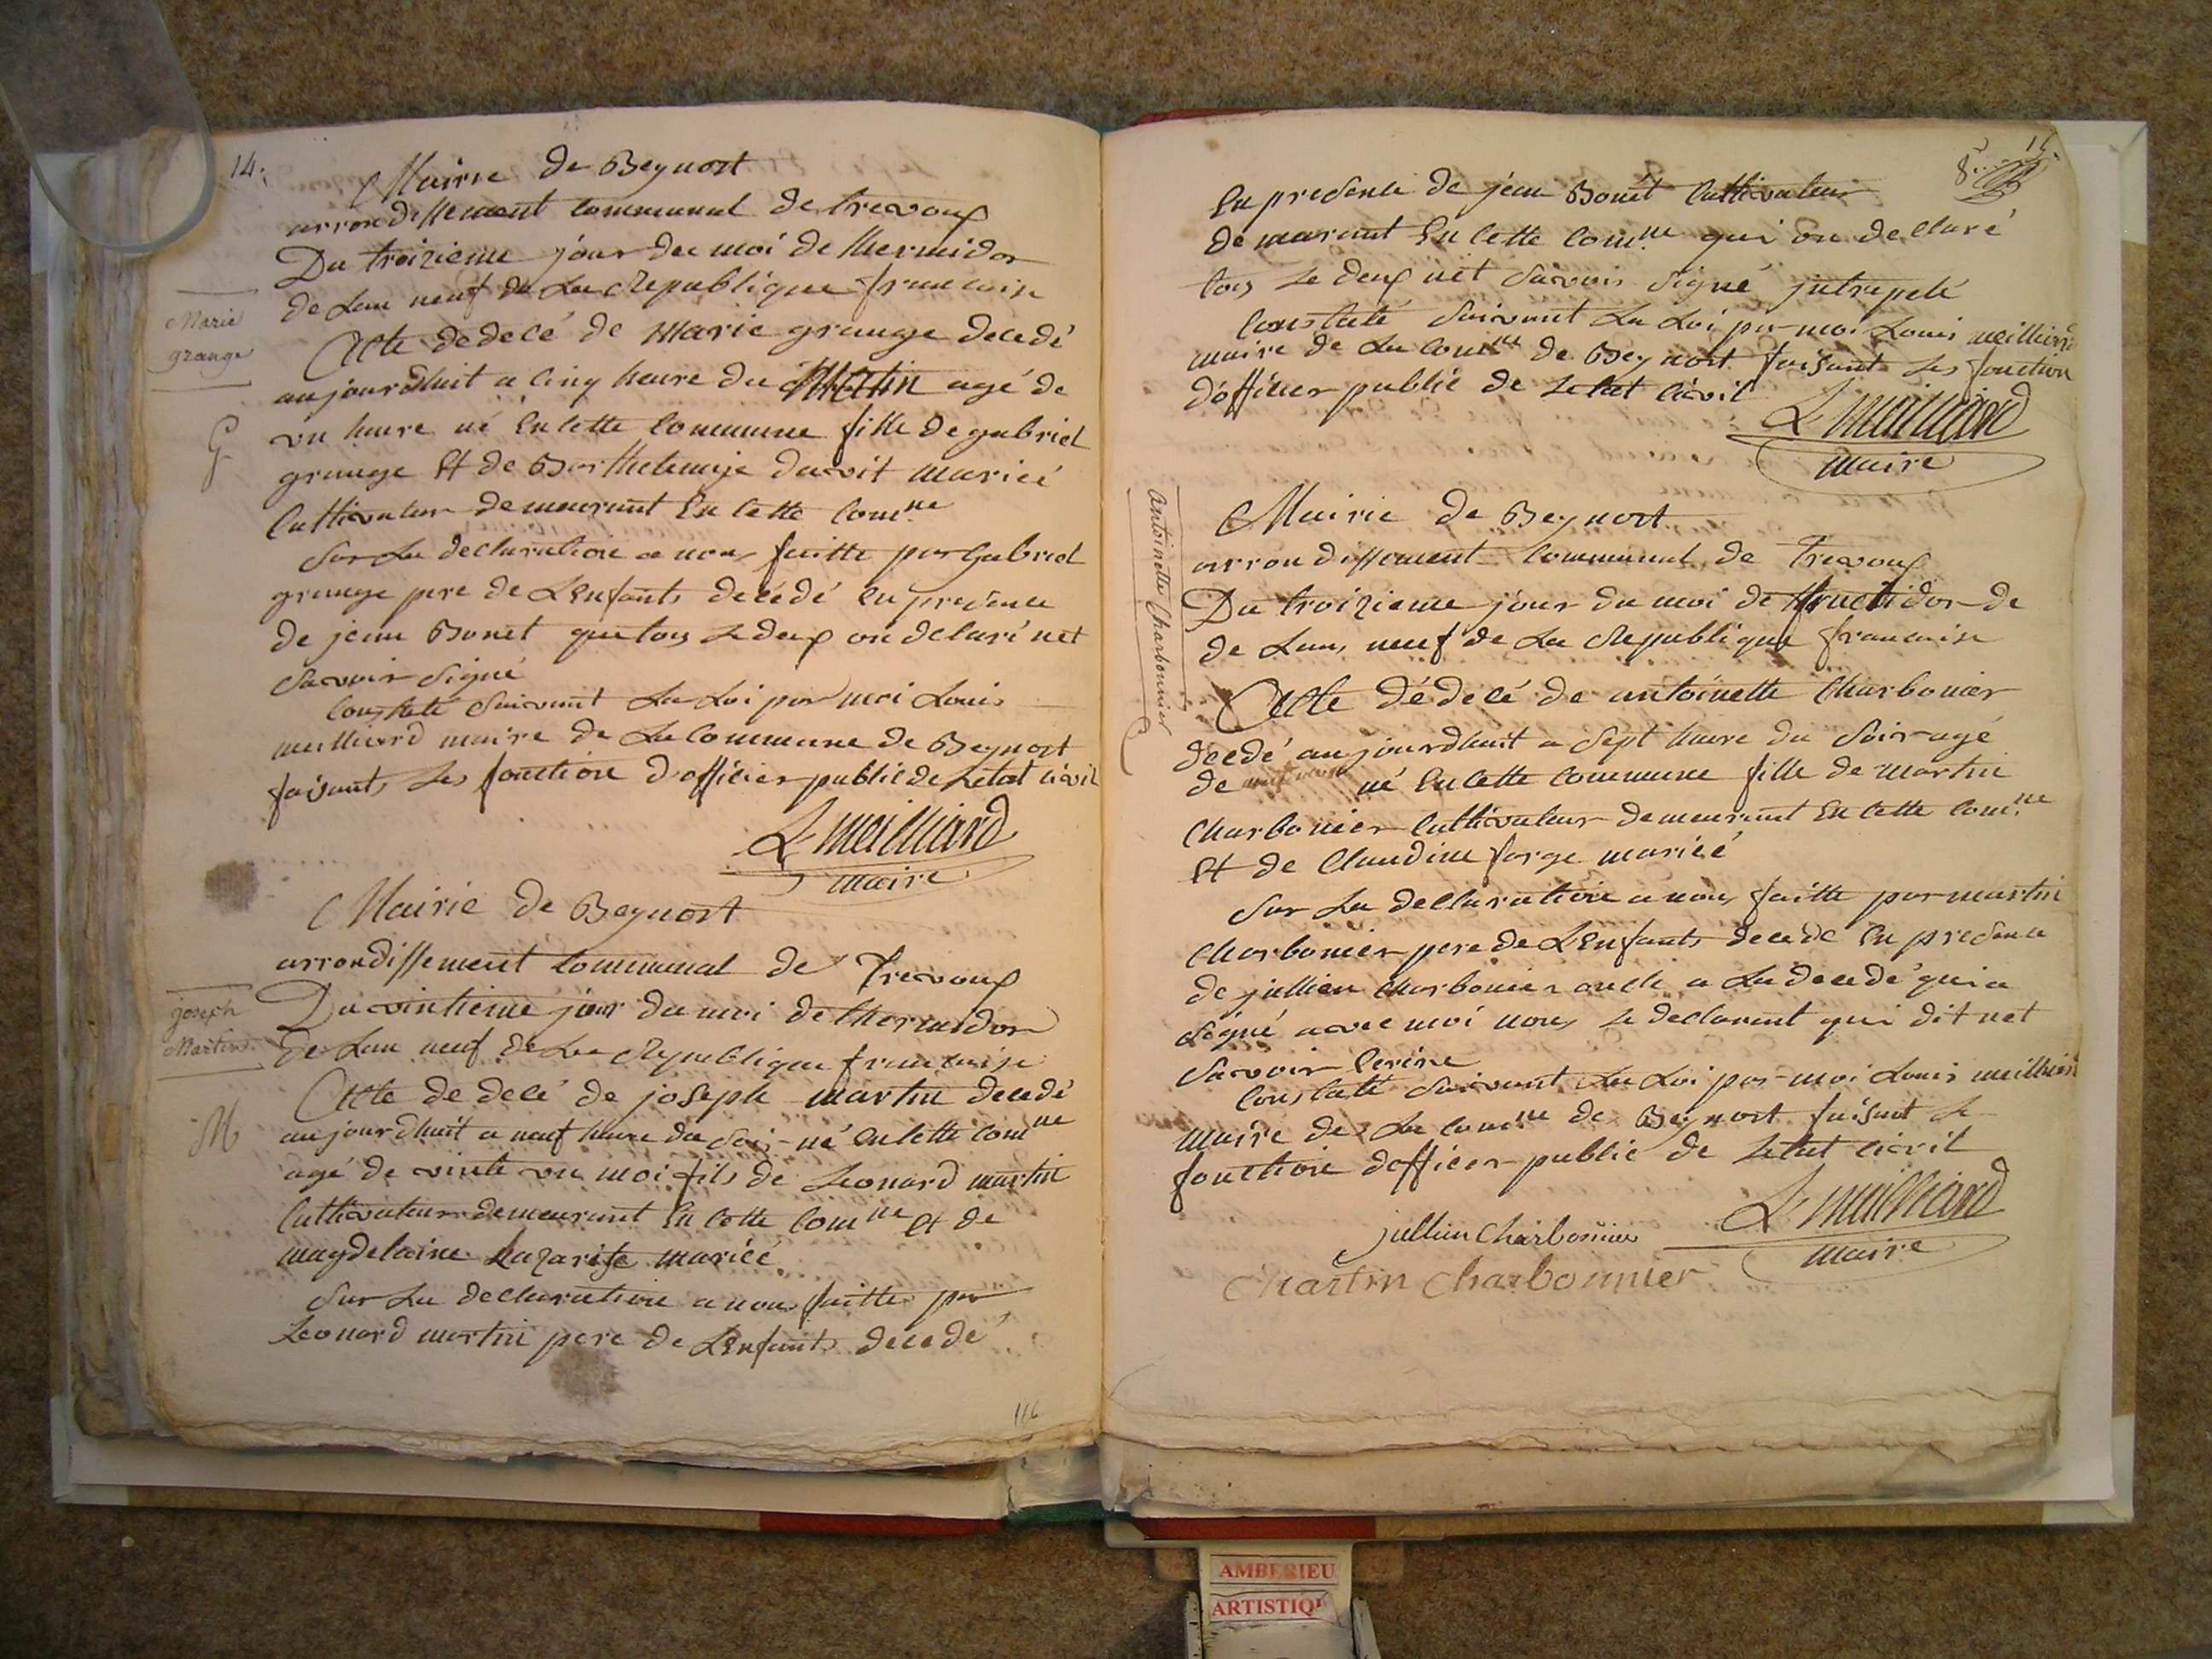 14.
Mairie de Beynost
arrondissement Communal de trevoux
Du troizieme jour du moi de thermidor
de Lan neuf de La Republique francaise
Marie
grange
Acte de decé de Marie grange decedé
aujourdhuit a cinq heure du Matin agé de
G
un heure né En cette Commune fille de gabriel
grange Et de Barthelemie davit mariéé
Cultivateur demeurant En cette Comne
Sur La declaration a nous faitte par gabriel
grange pere de LEnfants decédé En presence
de jean Bonet que tous Le deux on declaré net
Savoir Signé
Constaté Suivant La Loi par moi Louis
meilliard maire de La Commune de Beynost
faisants Les fonction d'officier public de Letat civil
L meilliard
maire
Mairie de Beynost
arrondissement Communal de Trevoux
joseph
Martin
Du vintieme jour du moi de thermidor
de Lan neuf de La Republique francaise
Acte de decé de joseph martin decedé
M
aujourdhuit a neuf heure du Soir né En cette Comne
agé de vinte un moi fils de Leonard martin
Cultivateur demeurant En cette Comne Et de
magdelaine Lazarise mariéé
Sur La declaration a nous faitte par
Leonard martin pere de LEnfants decedé
116
15.
En presence de jean Bonét Cultivateur
demeurant En Cette Comne qui on declaré
tous Le deux nét Savoir Signé jntrepelé
Constaté Suivant La Loi par moi Louis meilliard
maire de La Comne de Beynost faisant Les fonction
d'officier public de Letat civil
L meilliard
maire
Mairie de Beynost
arrondissement Communal de Trevoux
Antoinette Charbonnier
Du troizieme jour du moi de fructidor de
de Lan neuf de La Republique francaise
Acte dédecé de antoinette Charbonier
decedé aujourdhuit a Sept heure du Soir agé
de né En cette Commune fille de martin
Charbonier Cultivateur demeurant En cette Comne
Et de Claudine forge mariéé
Sur La declaration a nous faitte par martin
Charbonier pere de LEnfants decedé En presence
de jullien Charbonier oncle a La decedé qui a
Signé avec moi nous Le declarent qui dit net
Savoir Ecrire
Constaté Suivant La Loi par moi Louis meilliard
maire de La Comne de Beynost faisant Le
fonction d'officier public de Letat civil
jullien Charbonnier
L meilliard
maire
Martin Charbonnier
AMBERIEU
ARTISTIQU